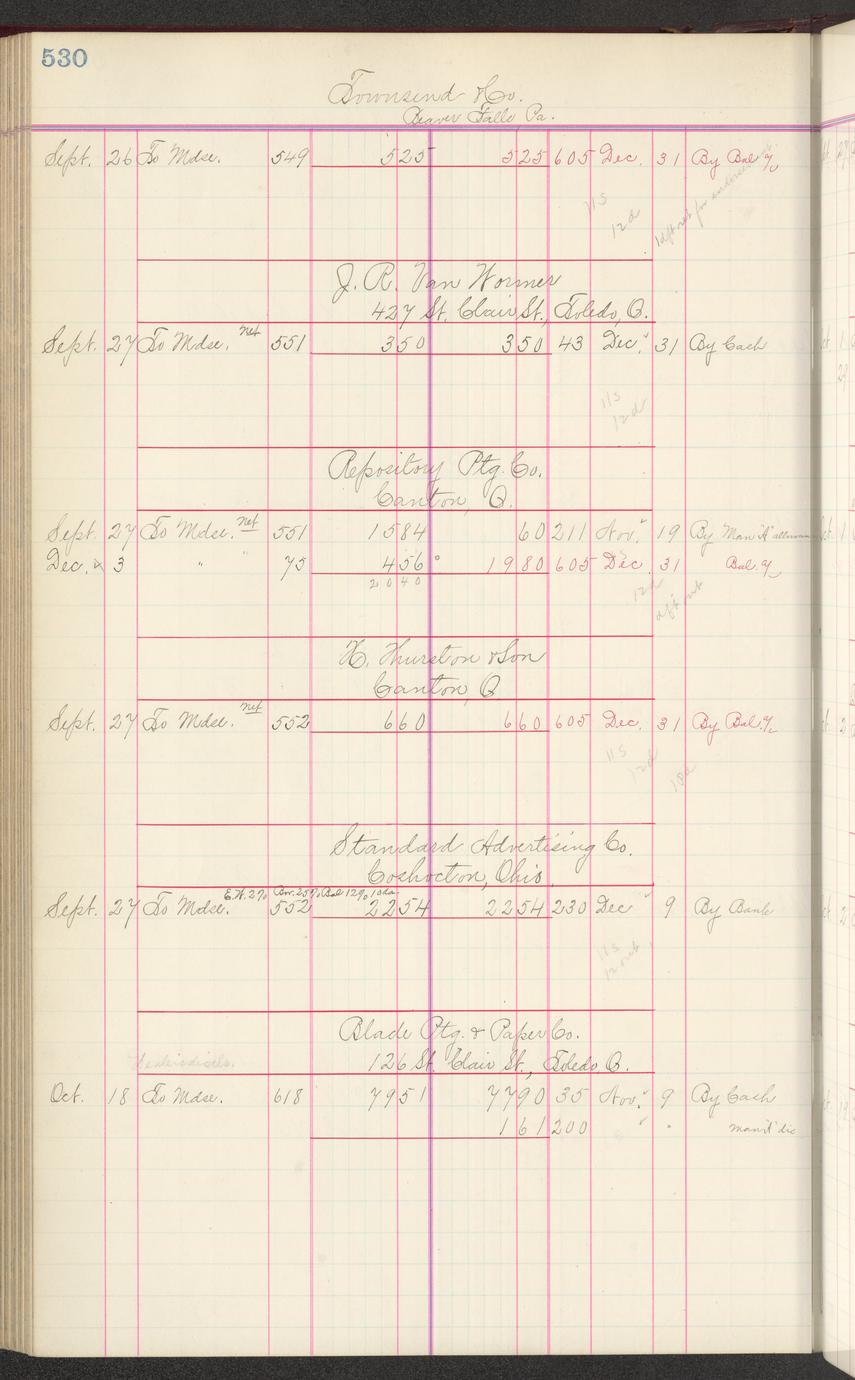 530
Townsend & Co.
Beaver Falls, Pa.
Sept. 26 To Mdse. 549 525 525 605 Dec. 31 By Bal. %
11 s
12 d
J. R. Van Wormer
427 St. Clair St., Toledo, O.
Sept. 27 To Mdse. net 551 350 350 43 Dec. 31 By Cash
11 s
12 d
Repository Ptg. Co.
Canton, O.
Sept. 27 To Mdse. net 551 1584 60 211 Nov. 19 By Man'f'
Dec. 3 " " 75 456 1980 605 Dec. 31 Bal. %
2040
12 d
H. Thurston & Son
Canton, O
Sept. 27 To Mdse. net 552 660 660 605 Dec. 31 By Bal. %
11 s
12 d
Standard Advertising Co.
Coshocton, Ohio
E.H. 2% Bur. 25% Bal 12% 10 da.
Sept. 27 To Mdse. 552 2254 2254 230 Dec " 9 By Bank
11 s
12 net
Blade Ptg. & Paper Co.
126 St. Clair St., Toledo, O.
Oct. 18 To Mdse. 618 7951 7790 35 Nov. 9 By Cash
161 200 " " Man'f' dis